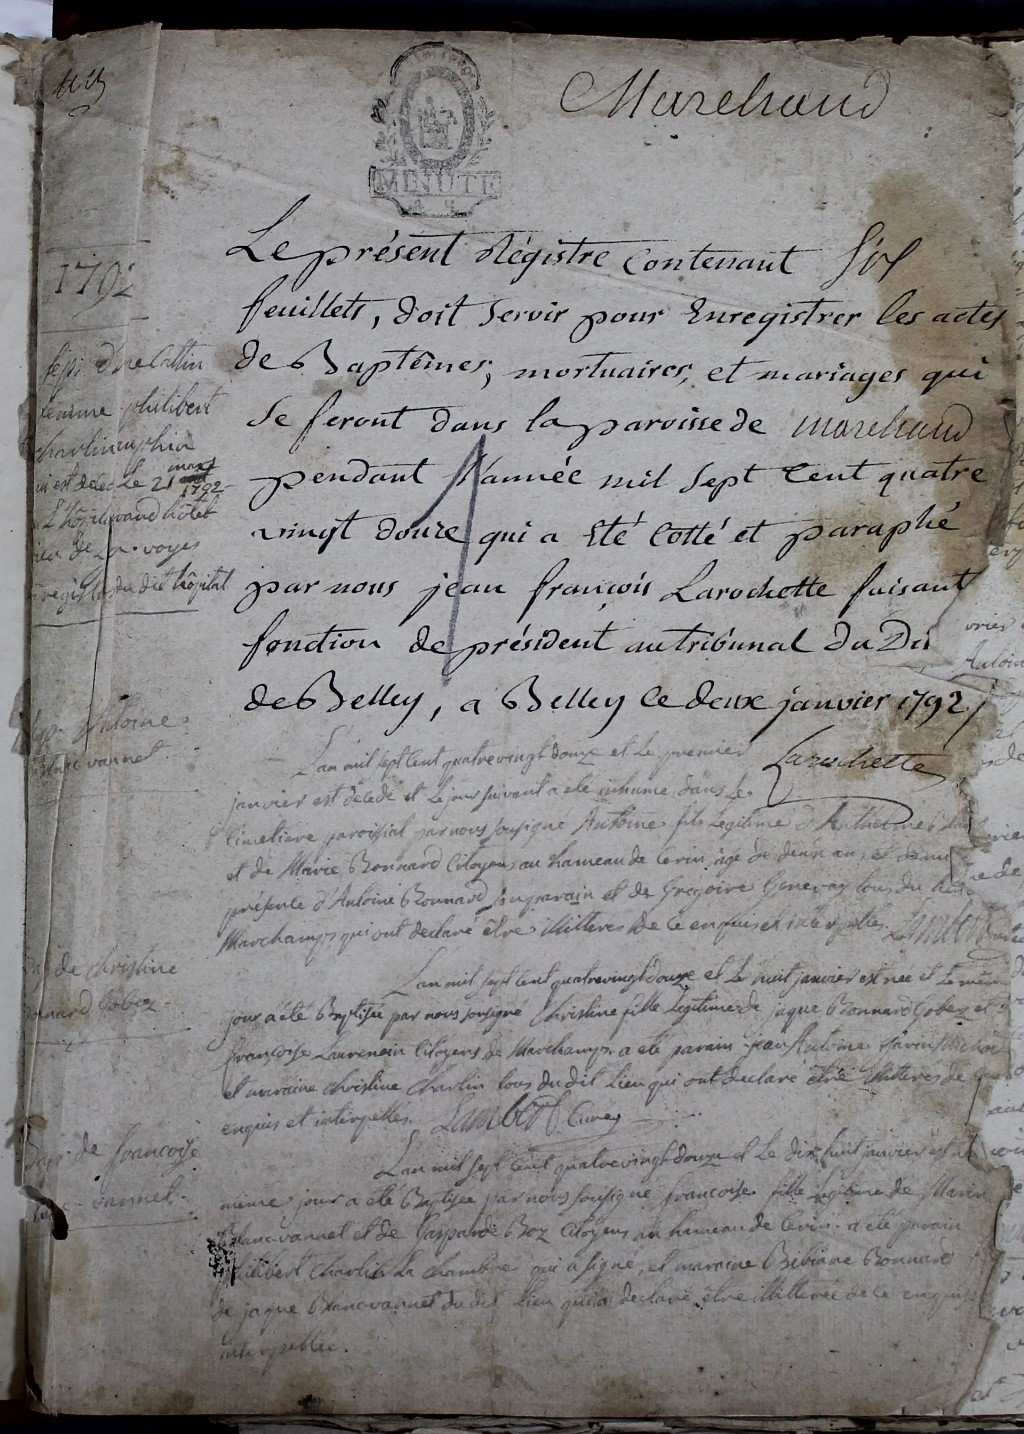 Marchand
MINUTE
1792
Le présent Régistre Contenant Six
feuillets, doit Servir pour Enregistrer les actes
de Baptêmes, mortuaires, et mariages qui
Se feront dans la paroisse de marchand
pendant l'année mil Sept Cent quatre
vingt douze qui a Eté Cotté et paraphé
par nous jean françois Larochette faisant
fonction de président au tribunal du Di
de Belley, a Belley le deux janvier 1792
Larochette
femme philibert
est decedé le 21 mars
1792
du dit hôpital
Antoine
vannet
L'an mil sept cent quatrevingt douze et le premier
janvier est décédé et le jour suivant a été inhumé dans le
Cimetiere paroissial par nous soussigné Antoine fils Légitime d'Anthelme
et de Marie Bonnard Citoyens au hameau de Cerin agé de deux ans et demi
présence d'Antoine Bonnard son parain et de Gregoire Genevay tous du
Marchamp qui ont declaré être illitteres de ce enquis et interpellés. Lambert
de Christine
Bonnard Gobez
L'an mil sept cent quatrevingt douze et le huit janvier est née et le même
jour a été Baptisée par nous soussigné Christine fille Légitime de jaque Bonnard Gobez et
françoise Laurencin Citoyens de Marchamp a été parain jean Antoine
et maraine Christine Charlin tous du dit lieu qui ont declaré être illitteres de
enquis et interpellés. Lambert Curé
Bap. de françoise
vannet
L'an mil sept cent quatrevingt douze et le dix huit janvier est
même jour a été Baptisée par nous soussigné françoise fille Légitime de Marin
Blancvannet et de Gasparde Boz Citoyens au hameau de Cerin a été parain
philibert Charlin La chambre qui a signé, et maraine Bibiane Bonnard
de jaque Blancvannet du dit lieu qui a declaré être illitterée de ce enquise
interpellée.